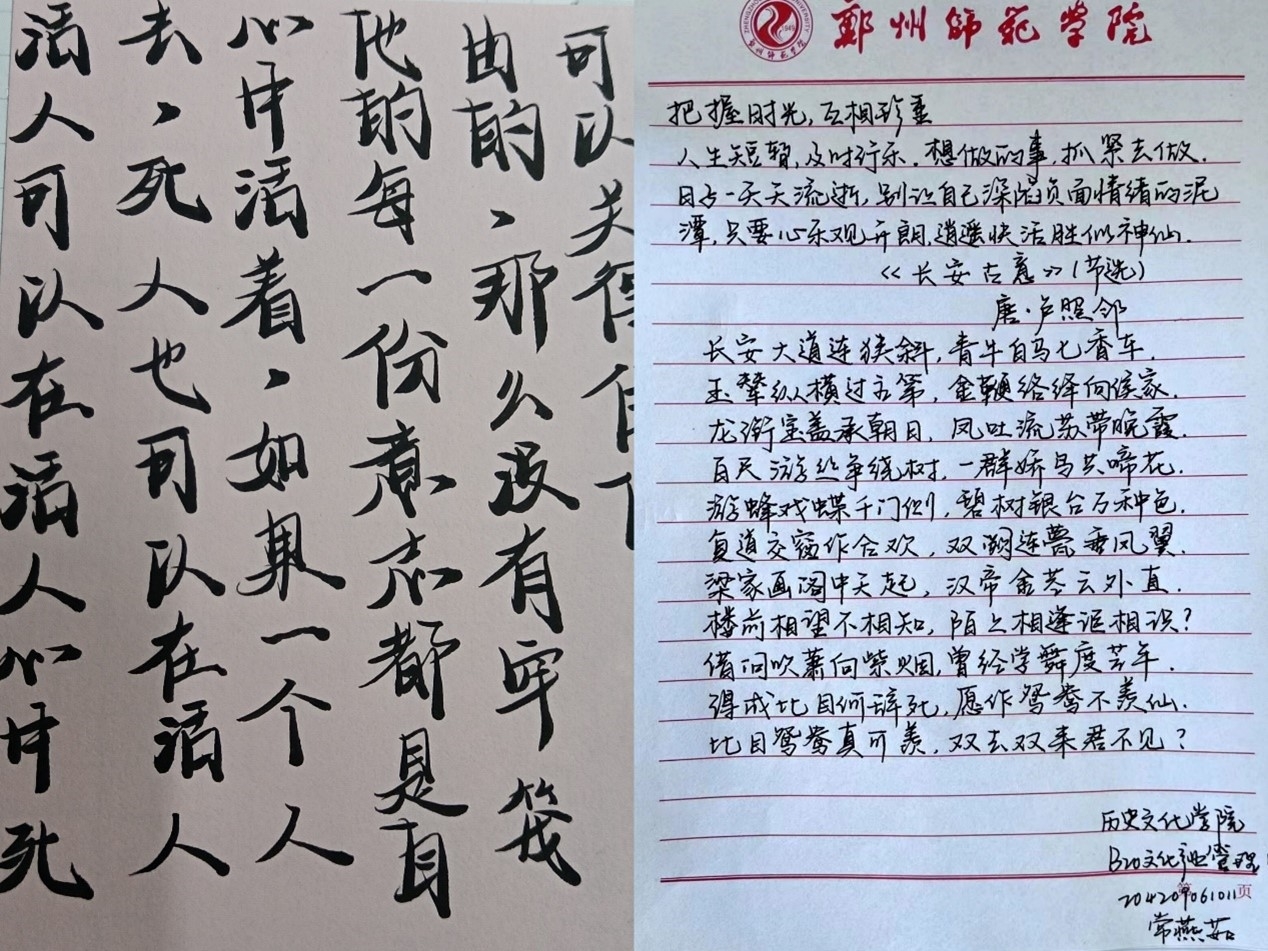 活人可以在活人心中死
去，死人也可以在活人
心中活着，如果一个人
他的每一份意志都是自
由的，那么没有牢笼
可以关得住
郑州师范学院
把握时光，互相珍重
人生短暂，及时行乐。想做的事，抓紧去做。
日子一天天流逝，别让自己深陷负面情绪的泥
潭，只要心乐观开朗，逍遥快活胜似神仙。
《长安古意》（节选）
唐·卢照邻
长安大道连狭斜，青牛白马七香车。
玉辇纵横过主第，金鞭络绎向侯家。
龙衔宝盖承朝日，凤吐流苏带晚霞。
百尺游丝争绕树，一群娇鸟共啼花。
游蜂戏蝶千门侧，碧树银台万种色。
复道交窗作合欢，双阙连甍垂凤翼。
梁家画阁中天起，汉帝金茎云外直。
楼前相望不相知，陌上相逢讵相识？
借问吹箫向紫烟，曾经学舞度芳年。
得成比目何辞死，愿作鸳鸯不羡仙。
比目鸳鸯真可羡，双去双来君不见？
历史文化学院
B20文化产业管理
204209061011
第 页
常燕茹